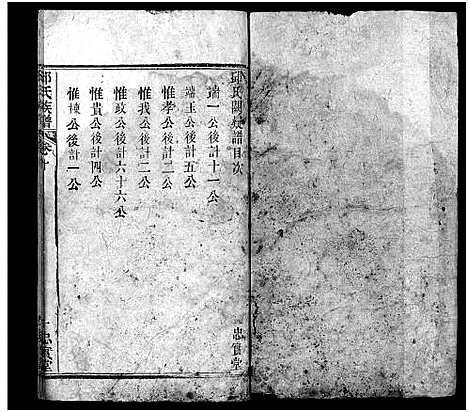 邱氏闔族譜目次
端一公後計十一公
端玉公後計五公
惟孝公後計二公
惟我公後計二公
惟政公後計六十六公
惟貴公後計四公
惟棟公後計一公
忠實堂
邱氏族譜
卷十
忠實堂